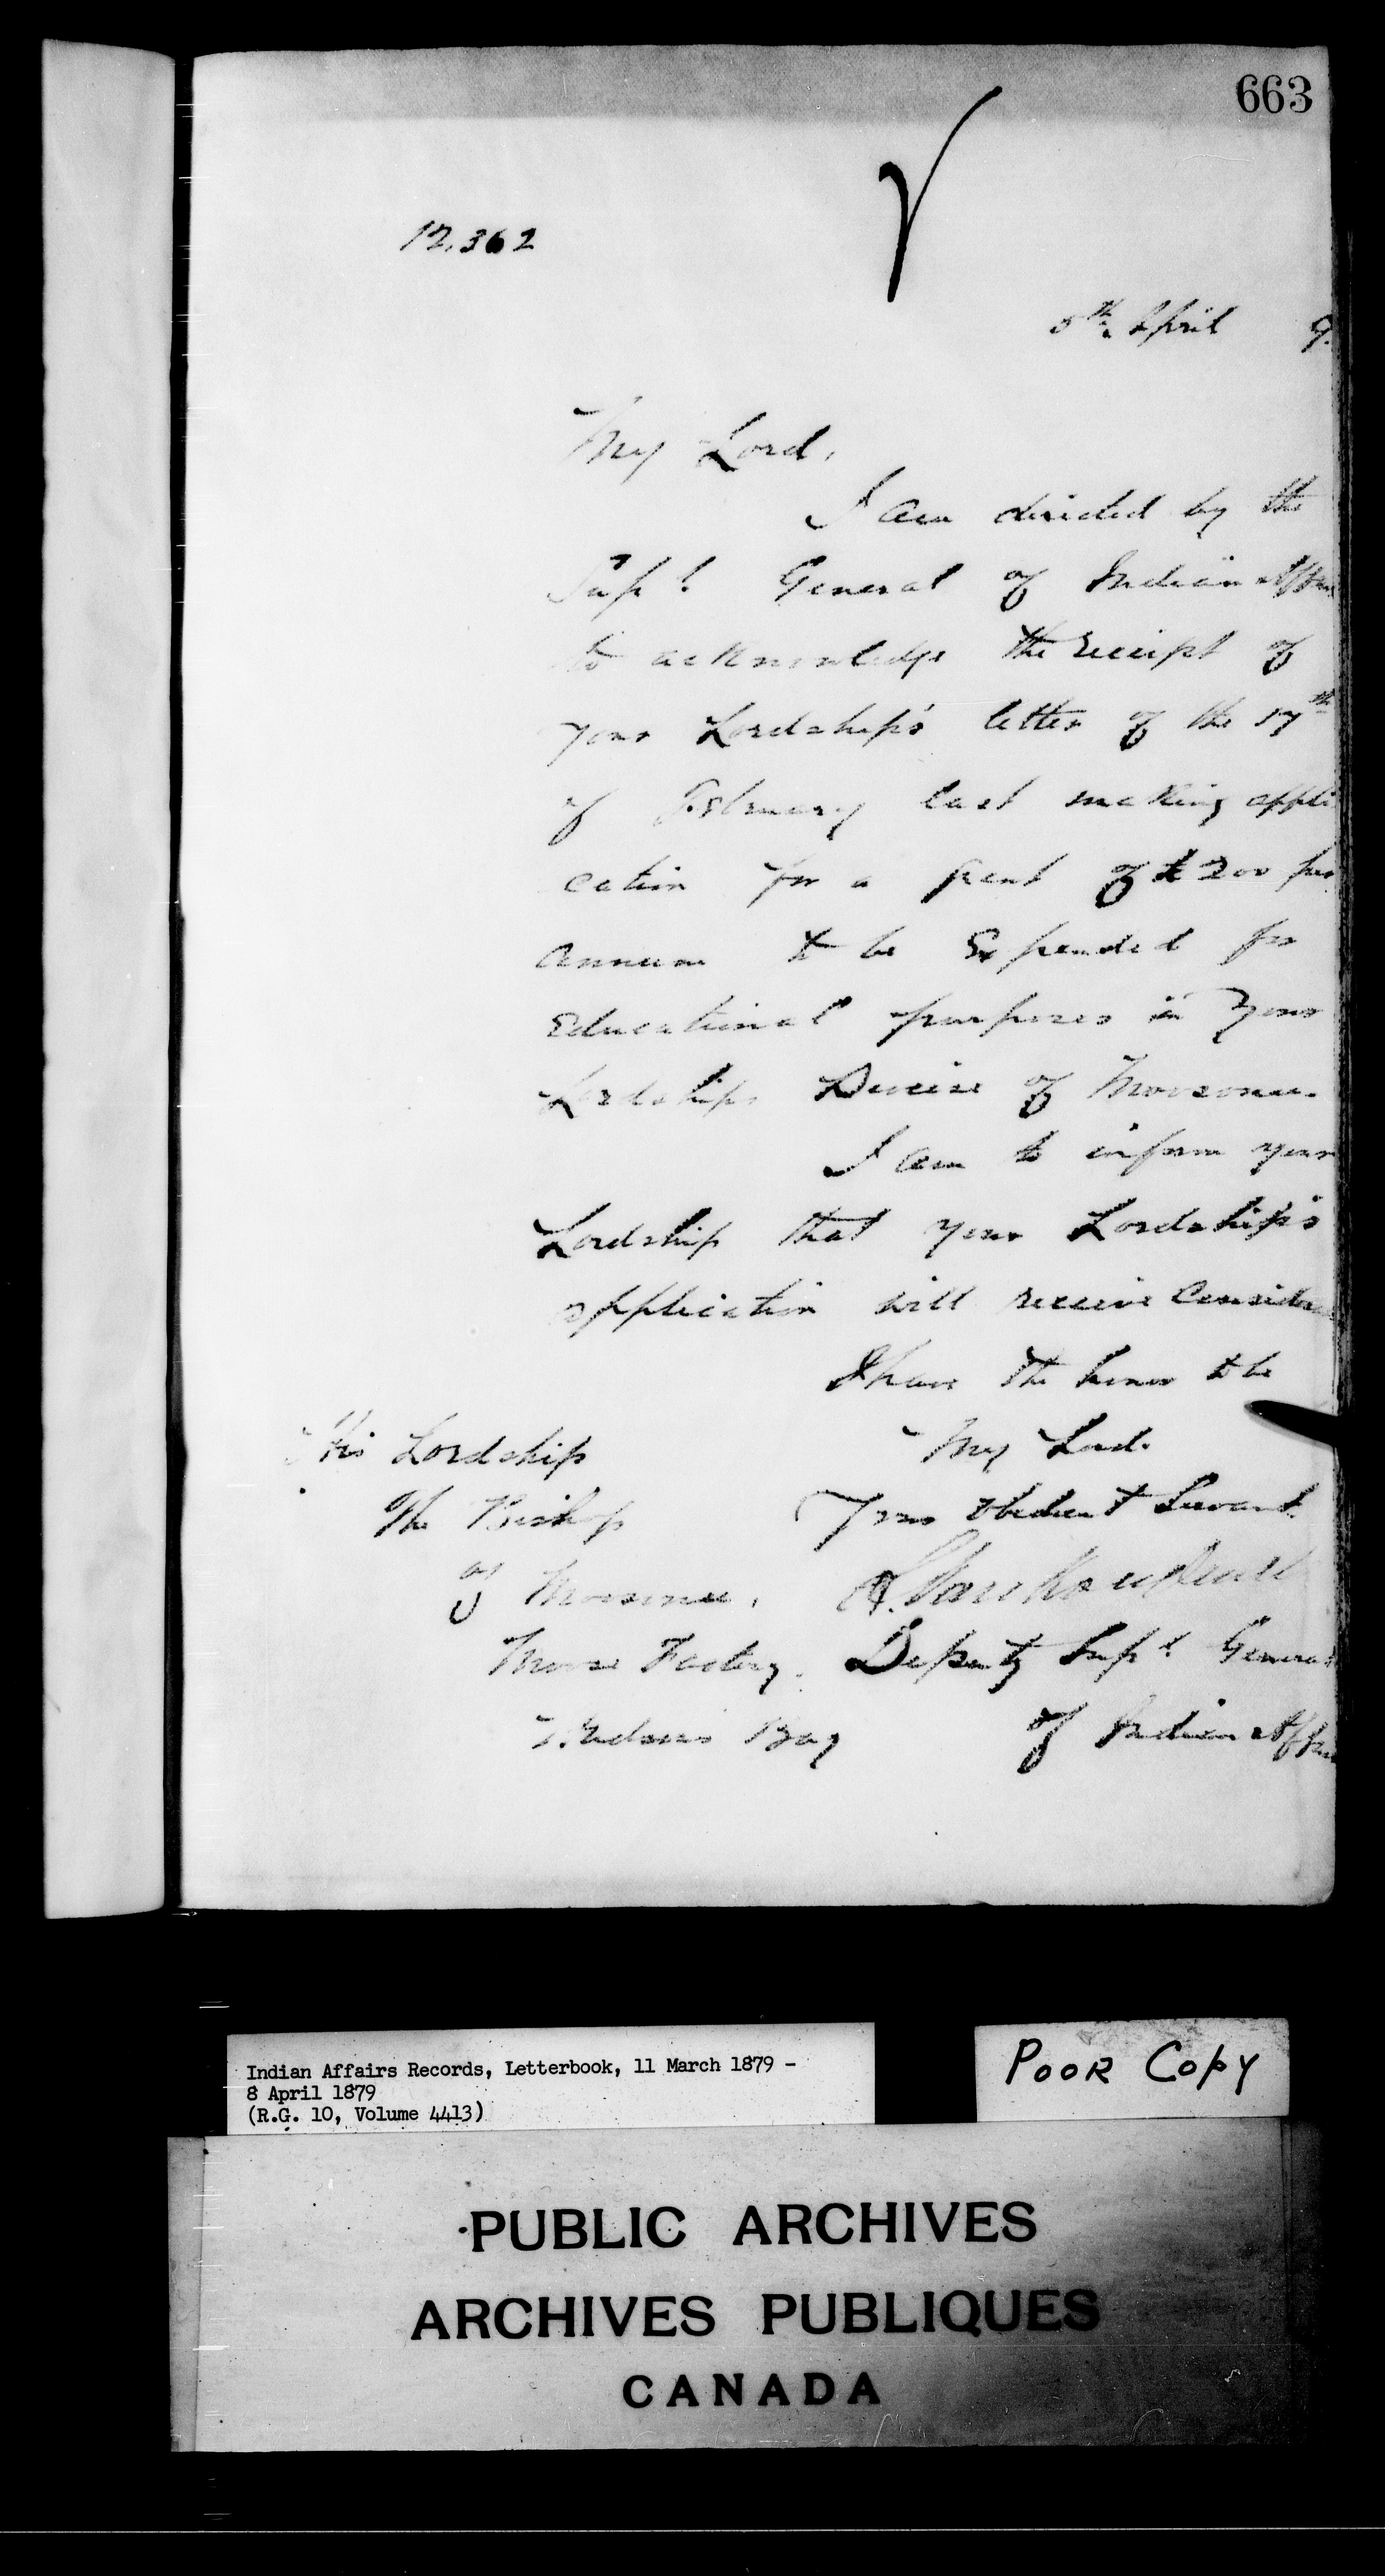 663
12.362
5th April 9.
My Lord,
I am directed by the
Supt. General of Indian Affairs
to acknowledge the receipt of
your Lordship's letter of the 17th
of February last making appli
cation for a grant of £ 200 per
annum to be Expended for
Educational purposes in your
Lordships Diocese of Moosonee.
I am to inform your
Lordship that your Lordship's
application will receive Consider
I have the honor to be
My Lord.
Your obedient Servant
His Lordship
The Bishop
of Moosonee,
Moose Factory.
Hudson's Bay
Deputy Supt. General
of Indian Affairs
Indian Affairs Records, Letterbook, 11 March 1879 -
8 April 1879
(R.G. 10, Volume 4413)
POOR COPY
PUBLIC ARCHIVES
ARCHIVES PUBLIQUES
CANADA